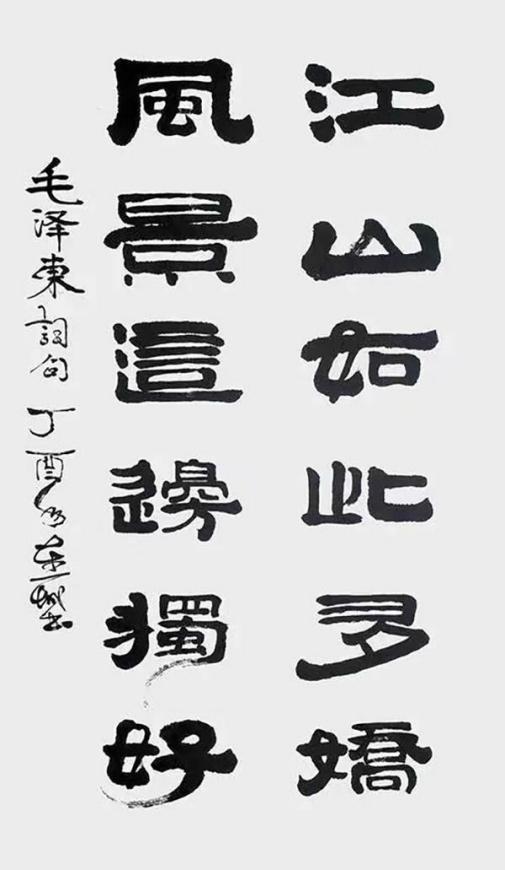 江山如此多嬌
風景這邊獨好
毛泽東詞句 丁酉